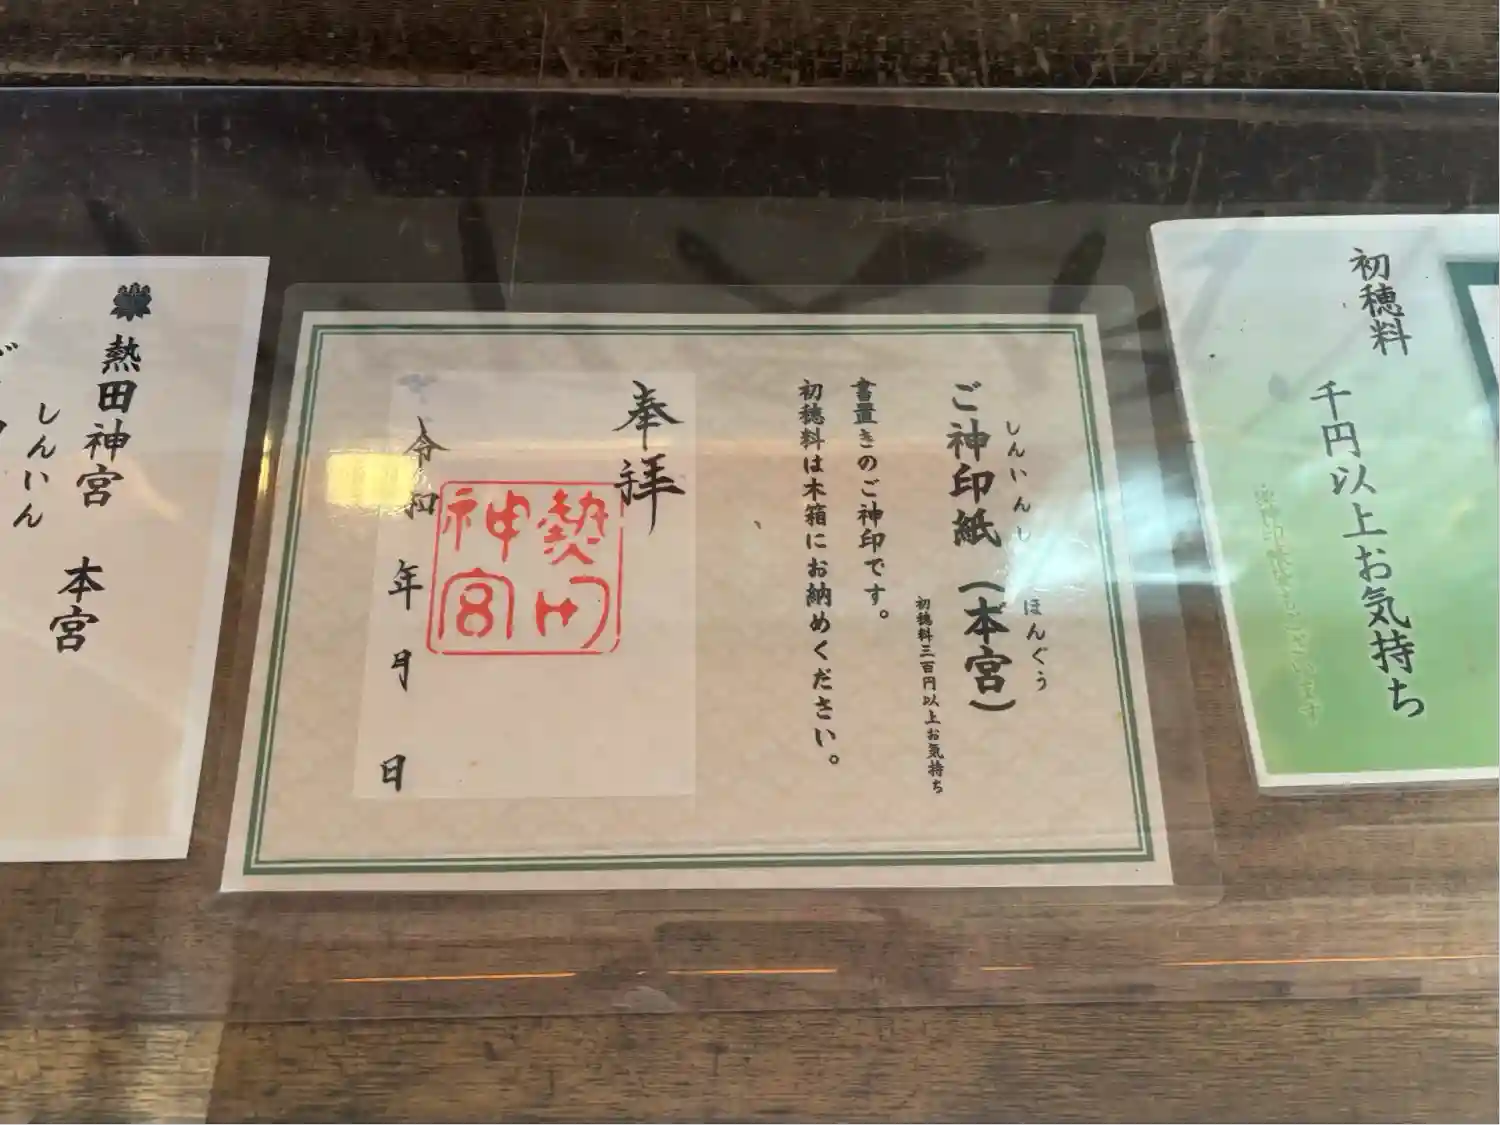 初穂料
千円以上お気持ち
しんいんし ほんぐう
ご神印紙（本宮）
初穂料三百円以上お気持ち
書置きのご神印です。
初穂料は木箱にお納めください。
奉拝
熱田
神宮
令和 年 月 日
熱田神宮 本宮
しんいん